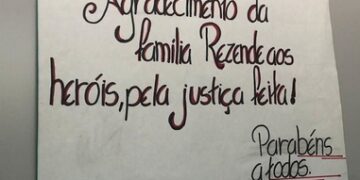 Agradecimento da
família Rezende aos
heróis, pela justiça feita!
Parabéns
a todos.